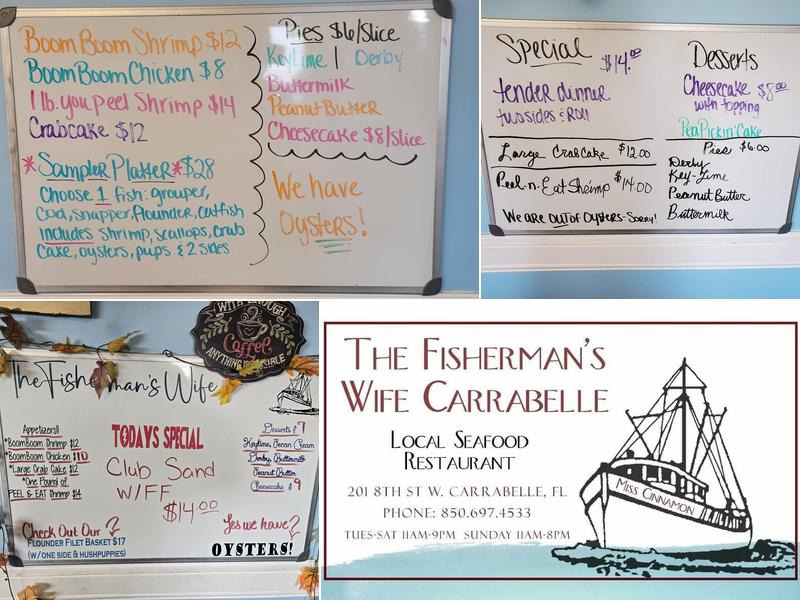 Boom Boom Shrimp $12
Boom Boom Chicken $8
1 lb. you peel Shrimp $14
Crabcake $12
*Sampler Platter* $28
Choose 1 fish: grouper,
Cod, snapper, flounder, catfish
includes shrimp, scallops, crab
cake, oysters, pups & 2 sides
Pies $6/Slice
KeyLime | Derby
Buttermilk
Peanut Butter
Cheesecake $8/slice
We have
Oysters!
Special $14.00
tender dinner
two sides & Roll
Large Crab Cake $12.00
Peel-n-Eat Shrimp $14.00
We are out of oysters-Sorry!
Desserts
Cheesecake $8.00
with topping
Pea Pickin' Cake
Pies $6.00
Derby
Key-Lime
Peanut Butter
Buttermilk
WITH ENOUGH
Coffee
ANYTHING IS POSSIBLE
The Fisherman's Wife
Appetizers!!
*BoomBoom Shrimp $12
*BoomBoom Chicken $10
*Large Crab Cake $12
*One Pound of
PEEL & EAT Shrimp $14
TODAYS SPECIAL
Club Sand
W/FF
$14.00
Desserts $7
Keylime, Pecan Cream
Derby, Buttermilk
Peanut Butter
Cheesecake $9
Check Out Our ?
FLOUNDER FILET BASKET $17
(W/ONE SIDE & HUSHPUPPIES)
Yes we have?
OYSTERS!
THE FISHERMAN'S
WIFE CARRABELLE
LOCAL SEAFOOD
RESTAURANT
201 8TH ST W. CARRABELLE, FL
PHONE: 850.697.4533
TUES-SAT 11AM-9PM SUNDAY 11AM-8PM
MISS CINNAMON